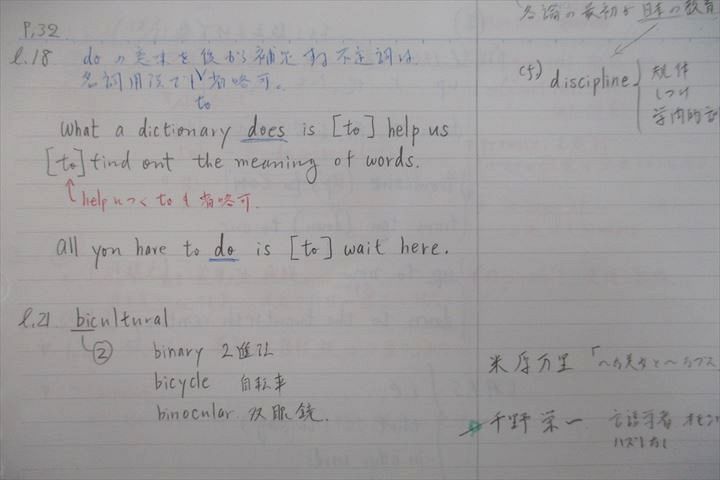 P.32
l.18 doの意味を後から補足する不定詞は、
名詞用法でも省略可。
to
What a dictionary does is [to] help us
[to] find out the meaning of words.
helpにつくtoも省略可.
all you have to do is [to] wait here.
l.21 bicultural
② binary 2進法
bicycle 自転車
binocular 双眼鏡.
各論の最初が日本の教育
(cf) discipline
規律
しつけ
学問的
米原万里 「
千野栄一 言語学者